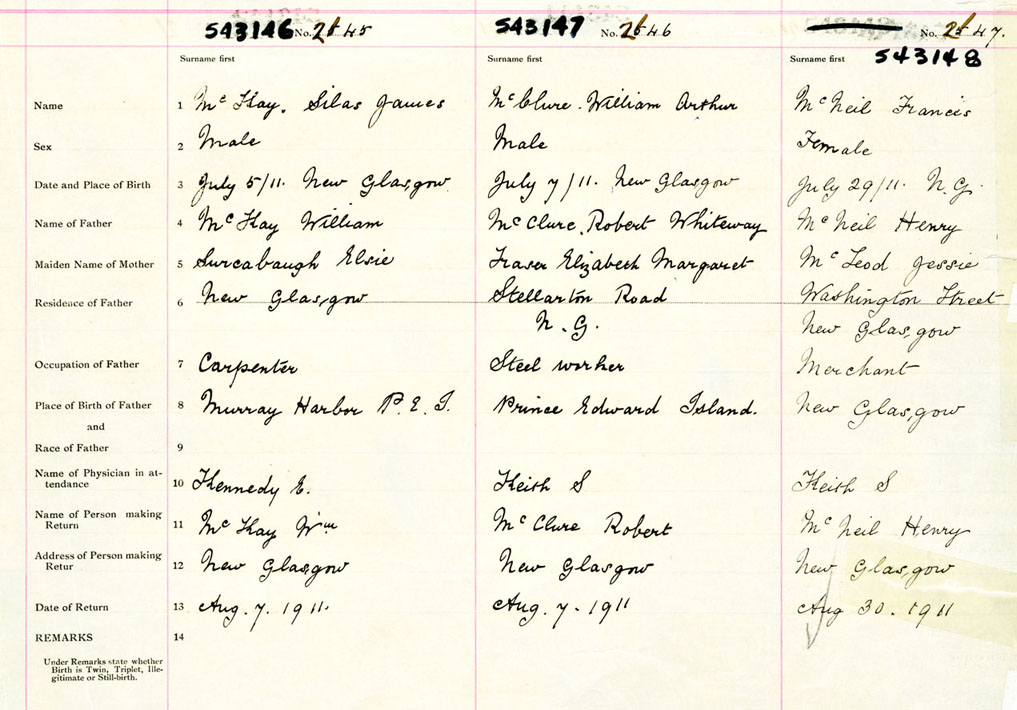 543146 No. 2545 543147 No. 2546 No. 2547.
Surname first Surname first Surname first 543148
Name 1 Mc Kay, Silas James Mc Clure. William Arthur Mc Neil Francis
Sex 2 Male Male Female
Date and Place of Birth 3 July 5/11. New Glasgow July 7/11. New Glasgow July 29/11. N.G.
Name of Father 4 Mc Kay William Mc Clure, Robert Whiteway Mc Neil Henry
Maiden Name of Mother 5 Elsie Fraser Elizabeth Margaret Mc Leod Jessie
Residence of Father 6 New Glasgow Stellarton Road Washington Street
N.G. New Glasgow
Occupation of Father 7 Carpenter Steel worker Merchant
Place of Birth of Father 8 Murray Harbor P.E.I. Prince Edward Island. New Glasgow
and
Race of Father 9
Name of Physician in at-
tendance 10 Kennedy E. Keith S Keith S
Name of Person making
Return 11 Mc Kay Wm Mc Clure Robert Mc Neil Henry
Address of Person making
Retur 12 New Glasgow New Glasgow New Glasgow
Date of Return 13 Aug. 7. 1911. Aug. 7. 1911 Aug 30. 1911
REMARKS 14
Under Remarks state whether
Birth is Twin, Triplet, Ille-
gitimate or Still-birth.